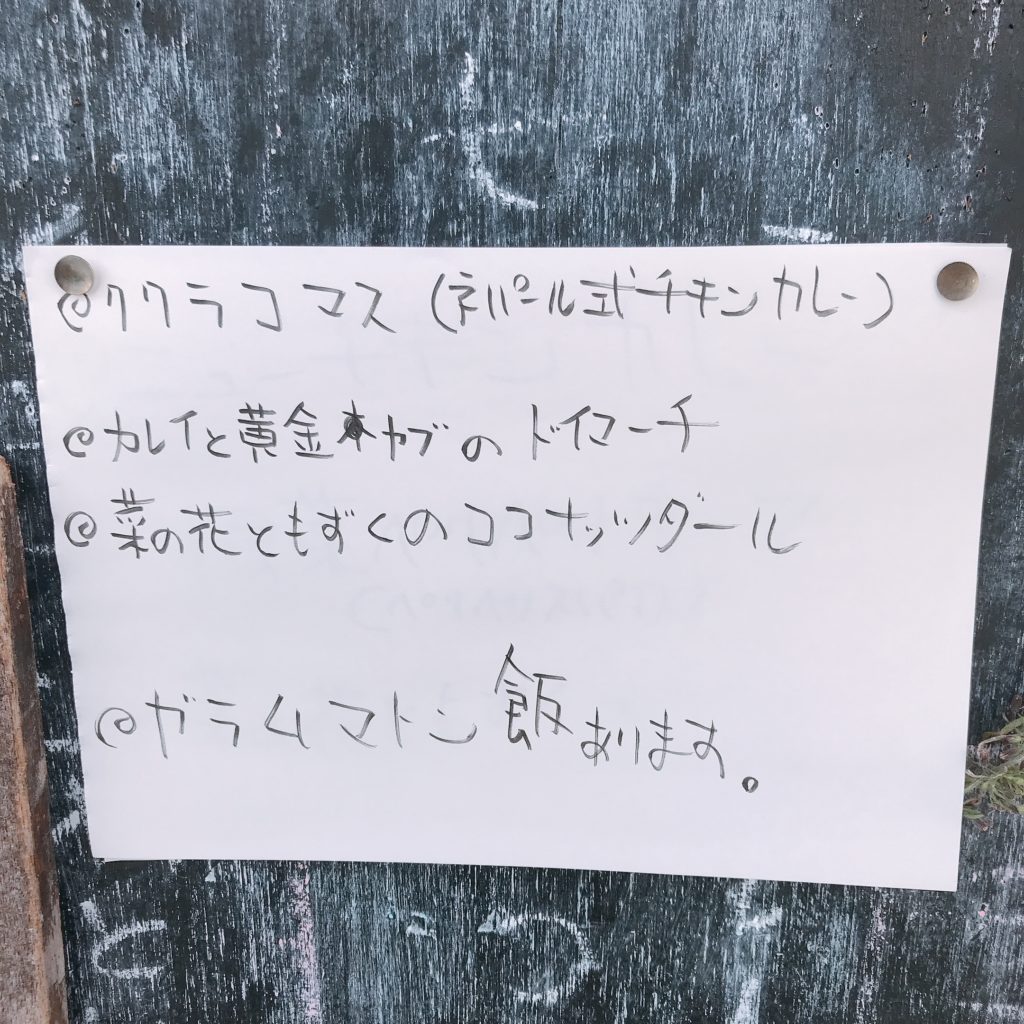 @ククラコマス(ネパール式チキンカレー)
@カレイと黄金カブのドイマーチ
@菜の花ともずくのココナッツダール
@ガラムマトン飯あります。